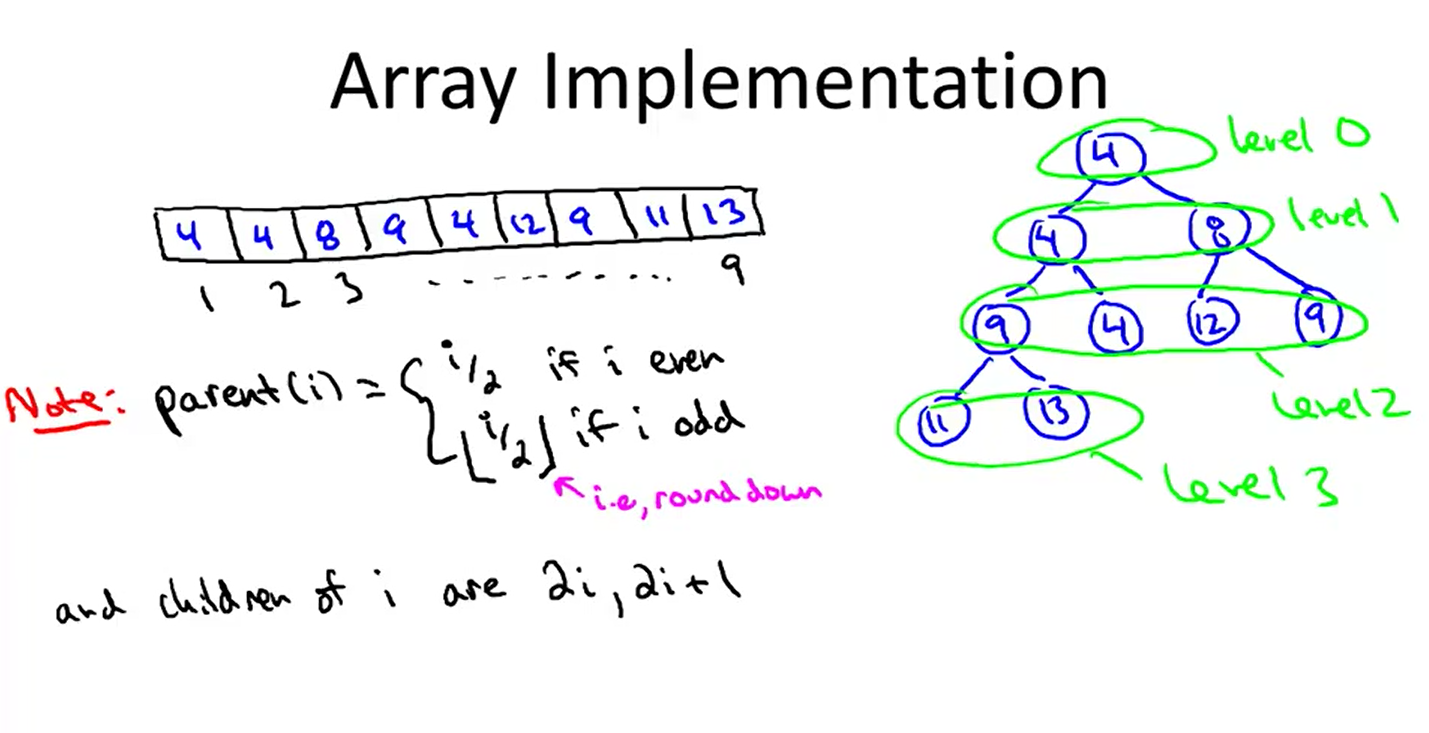 Array Implementation
4 4 8 9 4 12 9 11 13
1 2 3 ............ 9
Note: parent(i) = { i/2 if i even
⌊i/2⌋ if i odd
i.e, round down
and children of i are 2i, 2i+1
4 level 0
4 8 level 1
9 4 12 9
level 2
11 13
level 3